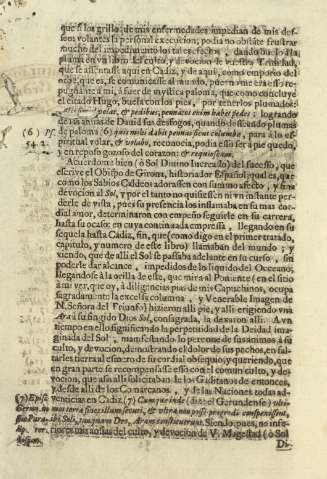 que si los grillos de mis enfermedades impedian de mis des-
seos volantes la personal execucion, podia no obstante frustrar
mucho del impedimento los tales escritos, dando buelo la
pluma en vn libro del culto, y devocion de nuestra Trinidad,
que se assentasse aqui en Cadiz, y de aqui, como emporio del
orbe, que es, se comunicasse al mundo, pues en mi era esso re-
pugnante à mi, à fuer de mystica paloma, que como concluye
el citado Hugo, buela con los pies, por tenerlos plumados:
volar, & pedibus, pennatos enim habet pedes; logrando
de las ansias de David sus desfogos, quando desseando plumas
(6) Ps. de paloma (6) quis mihi dabit pennas sicut columbæ, para à lo es-
54. 2. piritual volar, & volabo, reconocia, podia esso ser à pie quedo,
y en reposo gozoso del corazon: & requiescam.
Acordeme bien (ò Sol Divino Increado) del sucesso, que
escrive el Obispo de Girona, historiador Español; pues es, que
como los Sabios Caldeos adorassen con summo afecto, y fina
devocion al Sol, y por el tanto no quisiessen ni vn instante per-
derle de vista, pues su presencia los inflamaba en su mas cor-
dial amor, determinaron con empeño seguirle en su carrera,
hasta su ocaso: en cuya continuada empressa, llegando en su
sequela hasta Cadiz, fin, que (como digo en el primer tratado,
capitulo, y numero de este libro) llamaban del mundo; y
viendo, que de alli el Sol se passaba adelante en su curso, sin
poderle dar alcance, impedidos de lo liquido del Oceano;
llegandose à la orilla de este, que mira al Poniente (en el sitio
à mi ver, que oy, à diligencias pias de mis Capuchinos, ocupa
sagradamente la excelsa columna, y Venerable Imagen de
N. Señora del Triunfo) hizieron alli pie, y alli erigiendo vna
Ara à su fingido Dios Sol, consagrada, la dexaron alli. A vn
tiempo en ello significando la perpetuidad de la Deidad ima-
ginada del Sol, manifestando lo perenne de sus animos à su
culto, y devocion, demostrando el dolor de sus pechos, en fal-
tarles tierra al esfuerzo de su cordial obsequio, y queriendo, que
en gran parte se recompensasse esso con el comun culto, y de-
vocion, que asi alli solicitaban de los Gaditanos de entonces,
y desde alli de los Comarcanos, y de las Naciones todas ad-
(7) Episc. venticias en Cadiz. (7) Cumque inde (dize el Gerundense) ulti-
Gerun. in mas terræ sic exissent sinus, & ultra non posse progredi conspexissent,
sibi Soli, tanquam Deo, Aram constituerunt. Siendo, pues, no infe-
riores mis ansias del culto, y devocion de V. Magestad (ò Sol
Di-